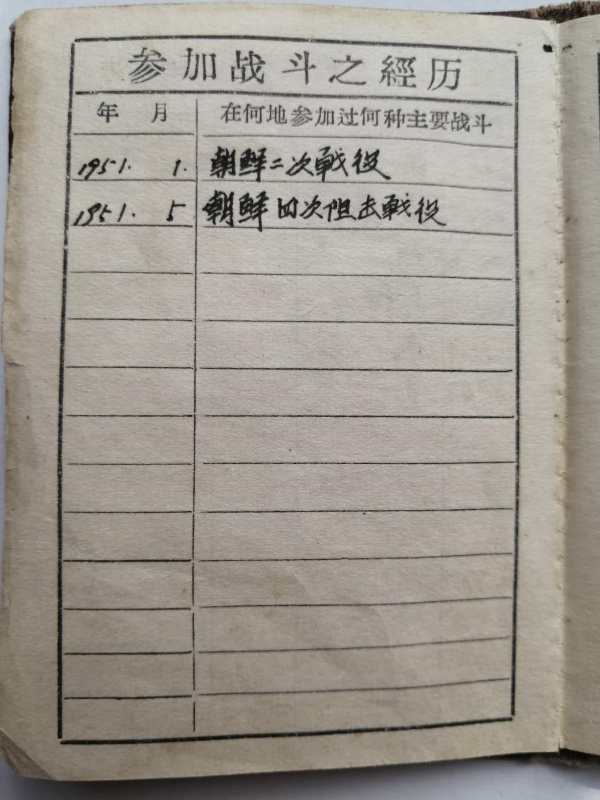 参加战斗之經历
年 月 在何地参加过何种主要战斗
1951. 1. 朝鲜二次戦役
1951. 5 朝鲜四次阻击戦役